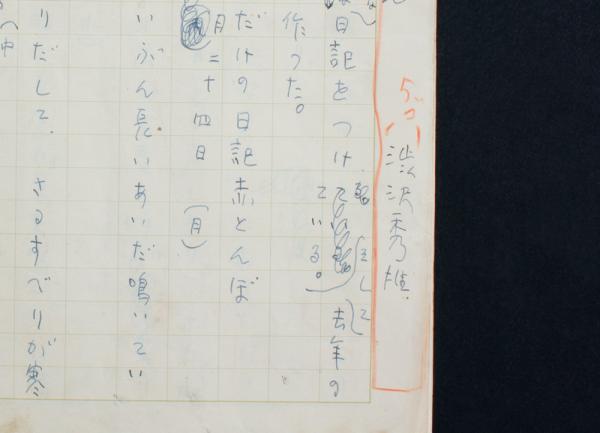 渋沢秀雄
日記をつけている。(主として)去年の
作った。
だけの日記赤とんぼ
月二十四日(月)
いぶん長いあいだ鳴いてい
りだして、さるすべりが寒